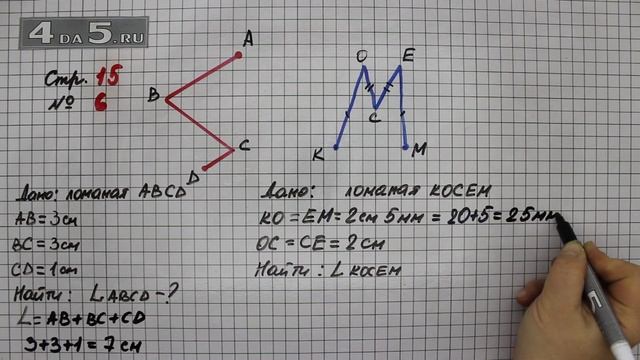 4DA5.RU
Стр. 15
№ 6
A
B
C
D
O
E
C
K
M
Дано: ломаная ABCD
AB = 3 см
BC = 3 см
CD = 1 см
Найти: L ABCD - ?
L = AB + BC + CD
3 + 3 + 1 = 7 см
Дано: ломаная КОСЕМ
КО = ЕМ = 2 см 5 мм = 20 + 5 = 25 мм
ОС = СЕ = 2 см
Найти: L КОСЕМ